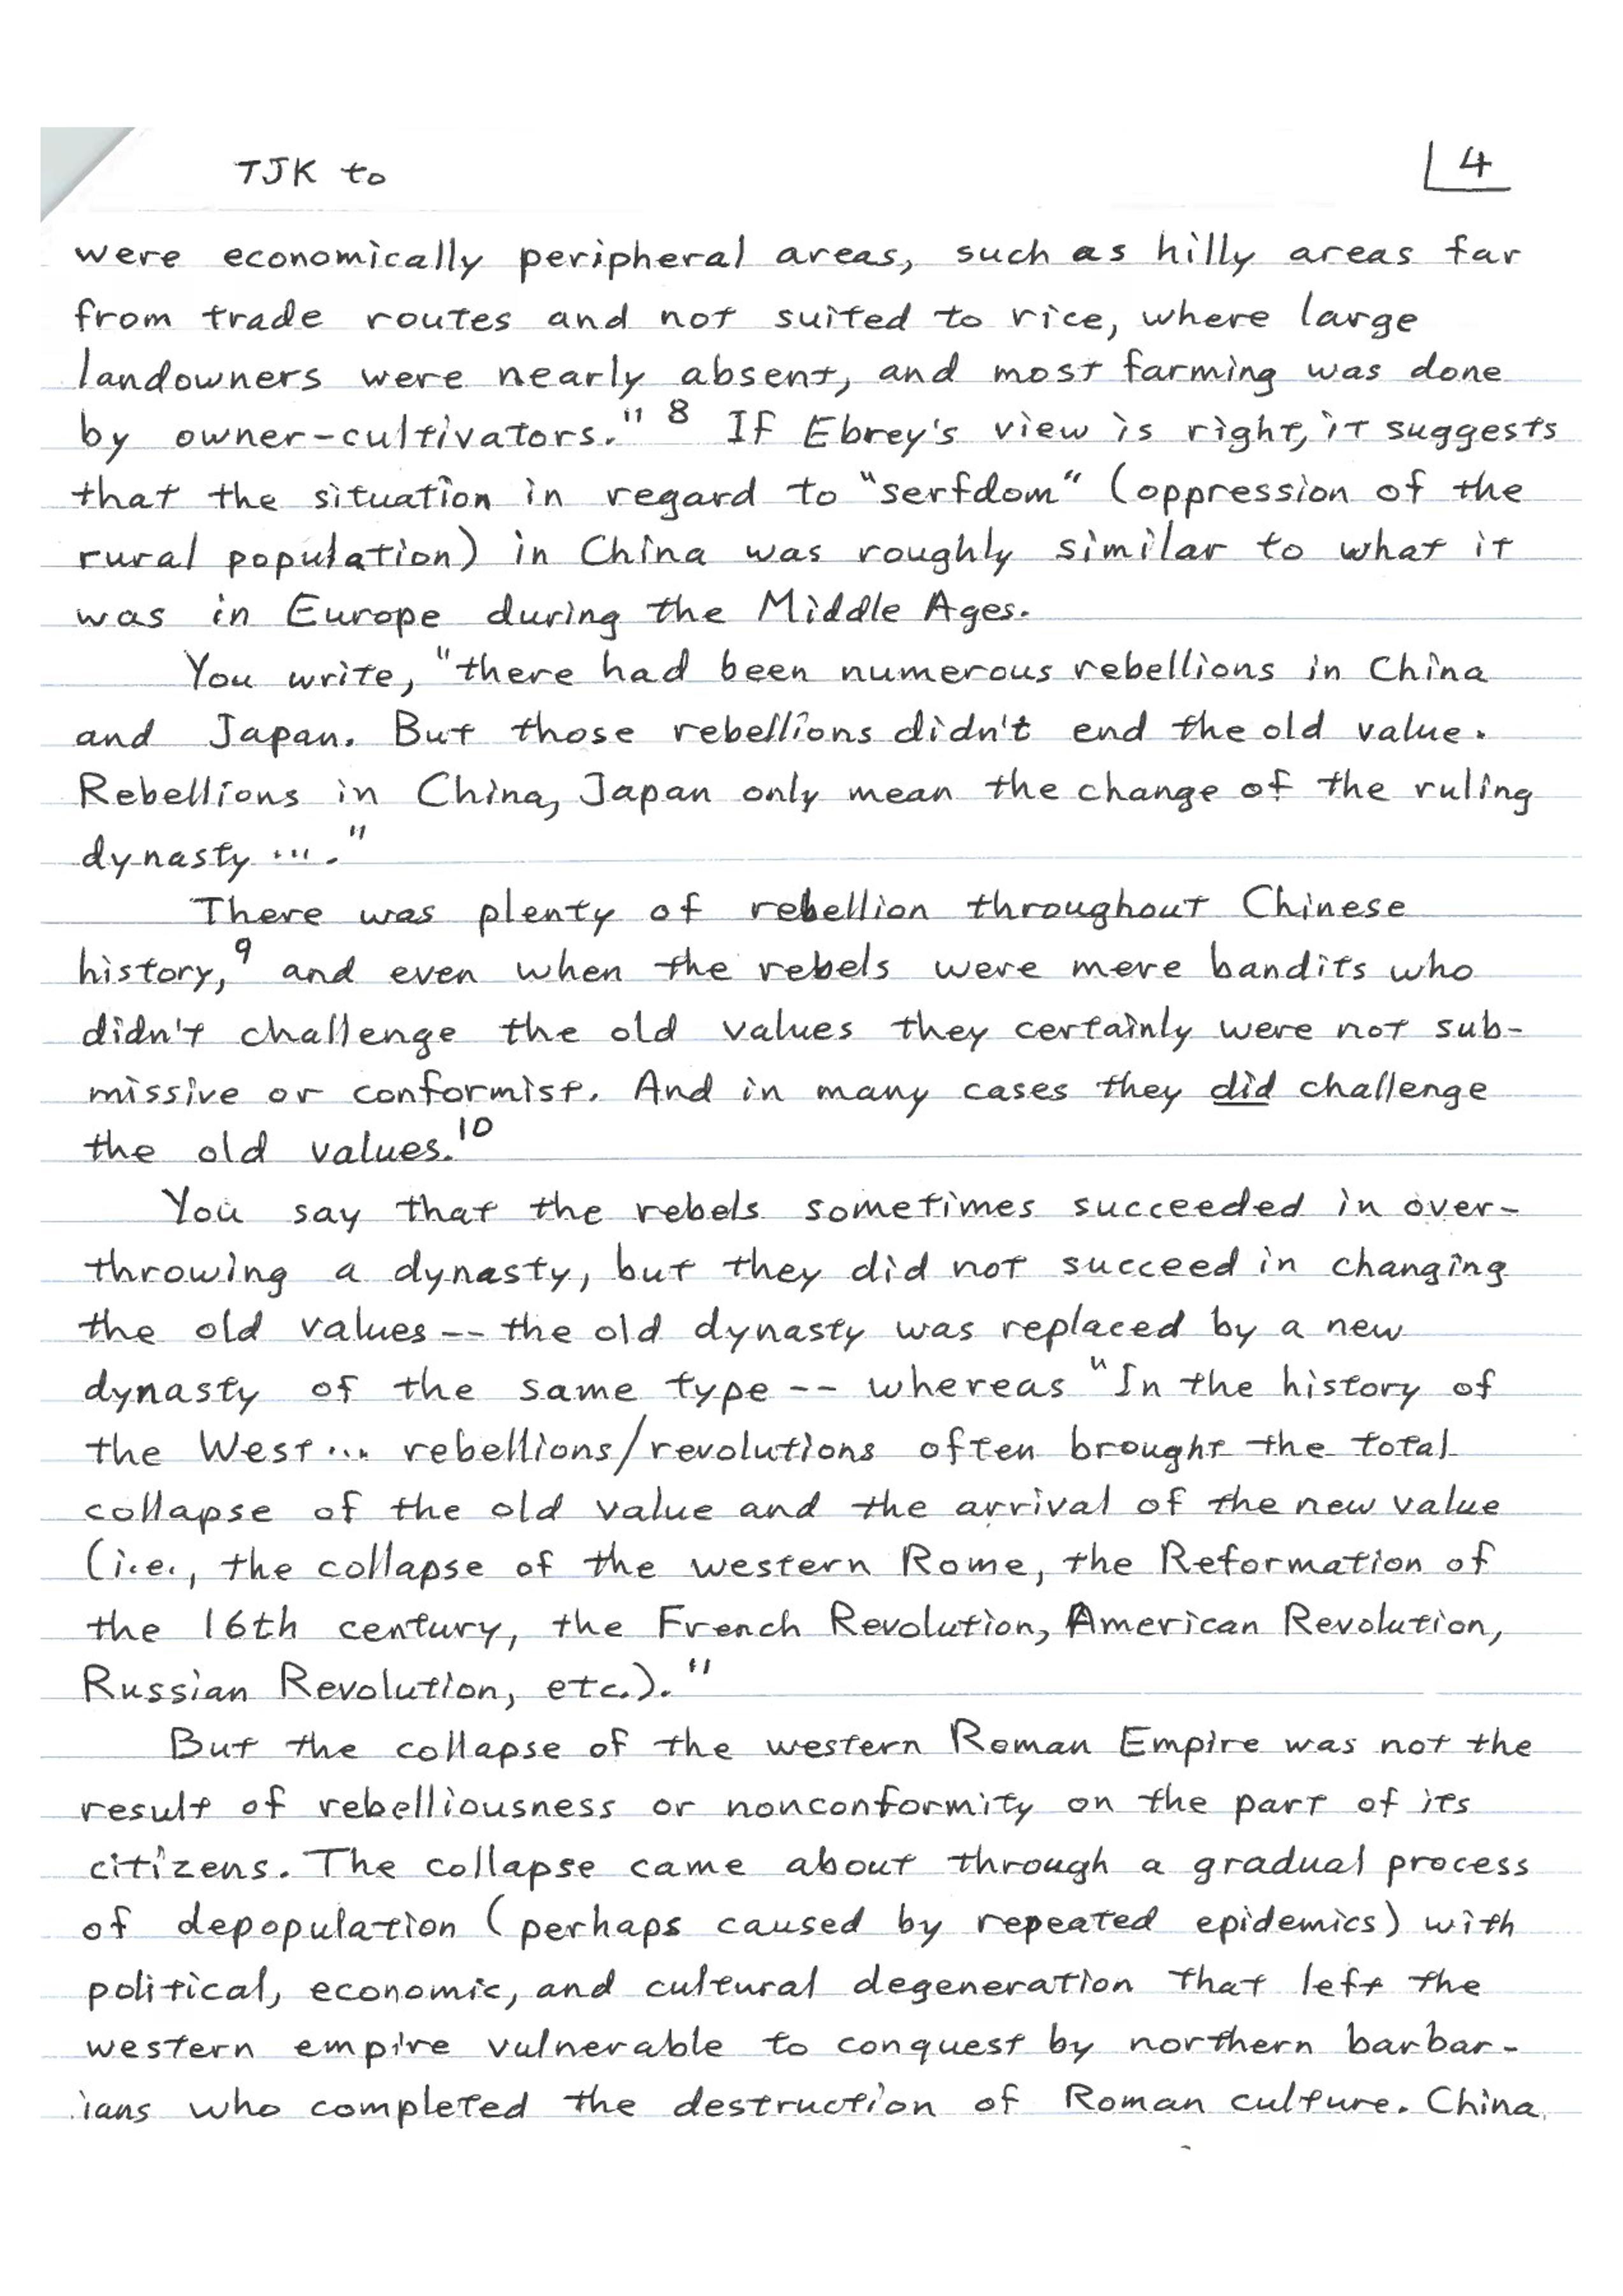 TJK to
4
were economically peripheral areas, such as hilly areas far
from trade routes and not suited to rice, where large
landowners were nearly absent, and most farming was done
by owner-cultivators." 8 If Ebrey's view is right, it suggests
that the situation in regard to "serfdom" (oppression of the
rural population) in China was roughly similar to what it
was in Europe during the Middle Ages.
You write, "there had been numerous rebellions in China
and Japan. But those rebellions didn't end the old value.
Rebellions in China, Japan only mean the change of the ruling
dynasty ...."
There was plenty of rebellion throughout Chinese
history,9 and even when the rebels were mere bandits who
didn't challenge the old values they certainly were not sub-
missive or conformist. And in many cases they did challenge
the old values.10
You say that the rebels sometimes succeeded in over-
throwing a dynasty, but they did not succeed in changing
the old values -- the old dynasty was replaced by a new
dynasty of the same type -- whereas "In the history of
the West... rebellions/revolutions often brought the total
collapse of the old value and the arrival of the new value
(i.e., the collapse of the western Rome, the Reformation of
the 16th century, the French Revolution, American Revolution,
Russian Revolution, etc.)."
But the collapse of the western Roman Empire was not the
result of rebelliousness or nonconformity on the part of its
citizens. The collapse came about through a gradual process
of depopulation (perhaps caused by repeated epidemics) with
political, economic, and cultural degeneration that left the
western empire vulnerable to conquest by northern barbar-
ians who completed the destruction of Roman culture. China